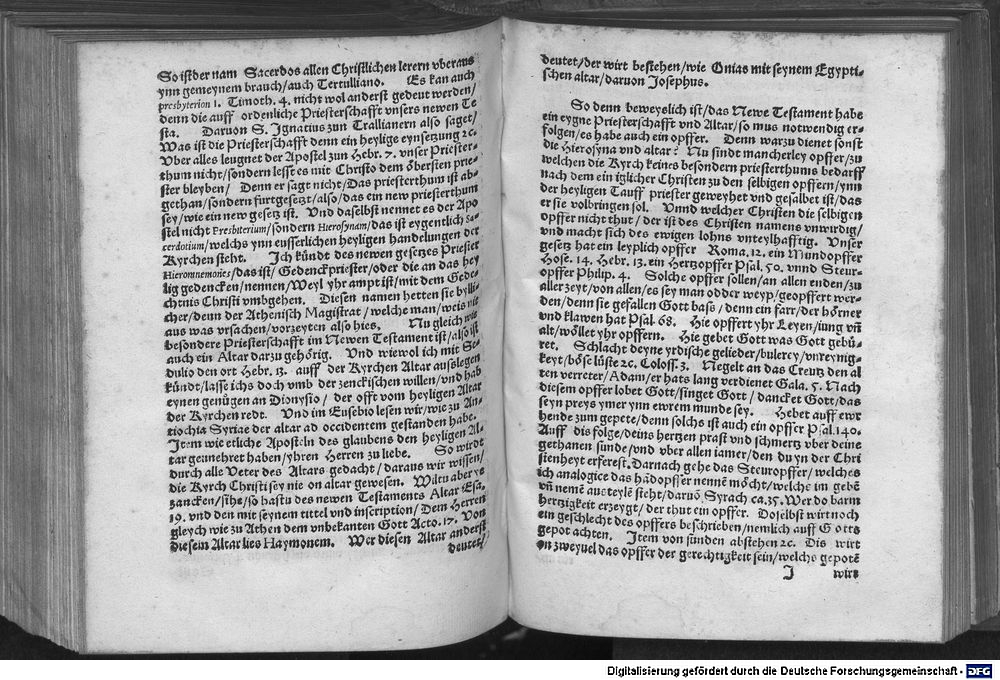 So ist der nam Sacerdos allen Christlichen lerern vberaus
ynn gemeynem brauch/auch Tertulliano. (Es kan auch
presbyterion 1. Timoth. 4. nicht wol anderst gedeut werden/
denn die auff ordenliche Priesterschafft vnsers newen Te
sta. Daruon S. Ignatius zun Trallianern also saget/
Was ist die Priesterschafft denn ein heylige eynsetzung ꝛc.
Vber alles leugnet der Apostel zun Hebr. 7. vnser Priester-
thum nicht/sondern lesse es mit Christo dem öbersten prie-
ster bleyben/ Denn er sagt nicht/Das priesterthum ist ab-
gethan/sondern furtgesetzt/also/das ein new priesterthum
sey/wie ein new gesetz ist. Vnd daselbst nennet es der Apo
stel nicht Presbiterium/sondern Hierosynam/das ist eygentlich Sa-
cerdotium/welchs ynn eusserlichen heyligen handelungen der
Kyrchen steht. Ich kündt des newen gesetzes Priester
Hieromnemonies/das ist/Gedenckpriester/oder die an das hey
lig gedencken/nennen/Weyl yhr ampt ist/mit dem Gede-
chtnis Christi vmbgehen. Diesen namen hetten sie bylli-
cher/denn der Athenisch Magistrat/welche man/weis nit
aus was vrsachen/vorzeyten also hies. Nu gleich wie
besondere Priesterschafft im Newen Testament ist/also ist
auch ein Altar darzu gehörig. Vnd wiewol ich mit Se-
dulio den ort Hebr. 13. auff der Kyrchen Altar auslegen
kündt/lasse ichs doch vmb der zenckischen willen/vnd hab
eynen genügen an Dionysio/der offt vom heyligen Altar
der Kyrchen redt. Vnd im Eusebio lesen wir/wie zu An-
tiochia Syriae der altar ad occidentem gestanden habe.
Item wie etliche Aposteln des glaubens den heyligen Al-
tar geunehret haben/yhren Herren zu liebe. So wirdt
durch alle Veter des Altars gedacht/daraus wir wissen/
die Kyrch Christi sey nie on altar gewesen. Wiltu aber ye
zancken/sihe/so hastu des newen Testaments Altar Esa.
19. vnd den mit seynem tittel vnd inscription/Dem Herren
gleych wie zu Athen dem vnbekanten Gott Acto. 17. Von
diesem Altar lies Haymonem. Wer diesen Altar anderst
deutet/
deutet/der wirt bestehen/wie Onias mit seynem Egypti-
schen altar/daruon Josephus.
So denn beweyslich ist/das Newe Testament habe
ein eygne Priesterschafft vnd Altar/so mus notwendig er-
folgen/es habe auch ein opffer. Denn warzu dienet sonst
die Hierosyna vnd altar? Nu sindt mancherley opffer/zu
welchen die Kyrch keines besondern priesterthums bedarff
nach dem ein iglicher Christen zu den selbigen opffern/ynn
der heyligen Tauff priester geweyhet vnd gesalbet ist/das
er sie volbringen sol. Vnnd welcher Christen die selbigen
opffer nicht thut/der ist des Christen namens vnwirdig/
vnd macht sich des ewigen lohns vnteylhafftig. Vnser
gesetz hat ein leyplich opffer Roma. 12. ein Mundopffer
Hose. 14. Hebr. 13. ein Hertzopffer Psal. 50. vnnd Steur-
opffer Philip. 4. Solche opffer sollen/an allen enden/zu
aller zeyt/von allen/es sey man odder weyp/geopffert wer-
den/denn sie gefallen Gott bass/denn ein farr/der hörner
vnd klawen hat Psal. 68. Hie opffert yhr Leyen/iung vñ
alt/wöllet yhr opffern. Hie gebet Gott was Gott gebü-
ret. Schlacht deyne yrdische gelieder/bulerey/vnreynig-
keyt/böse lüste ꝛc. Coloss. 3. Negelt an das Creutz den al
ten verreter/Adam/er hats lang verdienet Gala. 5. Nach
diesem opffer lobet Gott/singet Gott/dancket Gott/das
seyn preys ymer ynn ewrem munde sey. Hebet auff ewr
hende zum gepete/denn solchs ist auch ein opffer Psal. 140.
Auff dis folge/deins hertzen prast vnd schmertz vber deine
gethanen sünde/vnd vber allen iamer/den du yn der Chri
stenheyt erferest. Darnach gehe das Steuropffer/welches
ich analogice das hådopffer nennẽ möcht/welche im gebẽ
vñ nemẽ austeylẽ steht/daruõ Syrach ca. 35. Wer do barm
hertzigkeit erzeygt/der thut ein opffer. Doselbst wirt noch
ein geschlecht des opffers beschrieben/nemlich auff Gotts
gepot achten. Item von sünden abstehen ꝛc. Dis wirt
on zweyuel das opffer der gerechtigkeit sein/welchs gepotẽ
J wirt
Digitalisierung gefördert durch die Deutsche Forschungsgemeinschaft - DFG